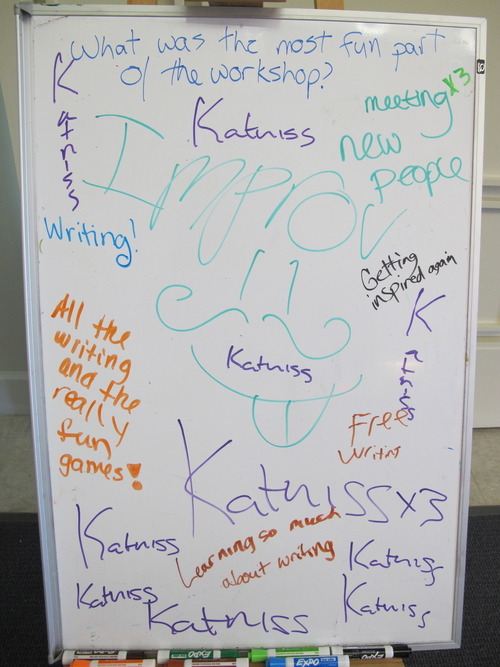 What was the most fun part
of the workshop?
Katniss
Katniss
meeting x3
new
people
Improv
Writing!
Getting
inspired again
Katniss
Katniss
All the
writing
and the
really
fun
games!
Free
writing
Katniss x3
Learning so much
about writing
Katniss
Katniss
Katniss
Katniss
Katniss
EXPO
EXPO